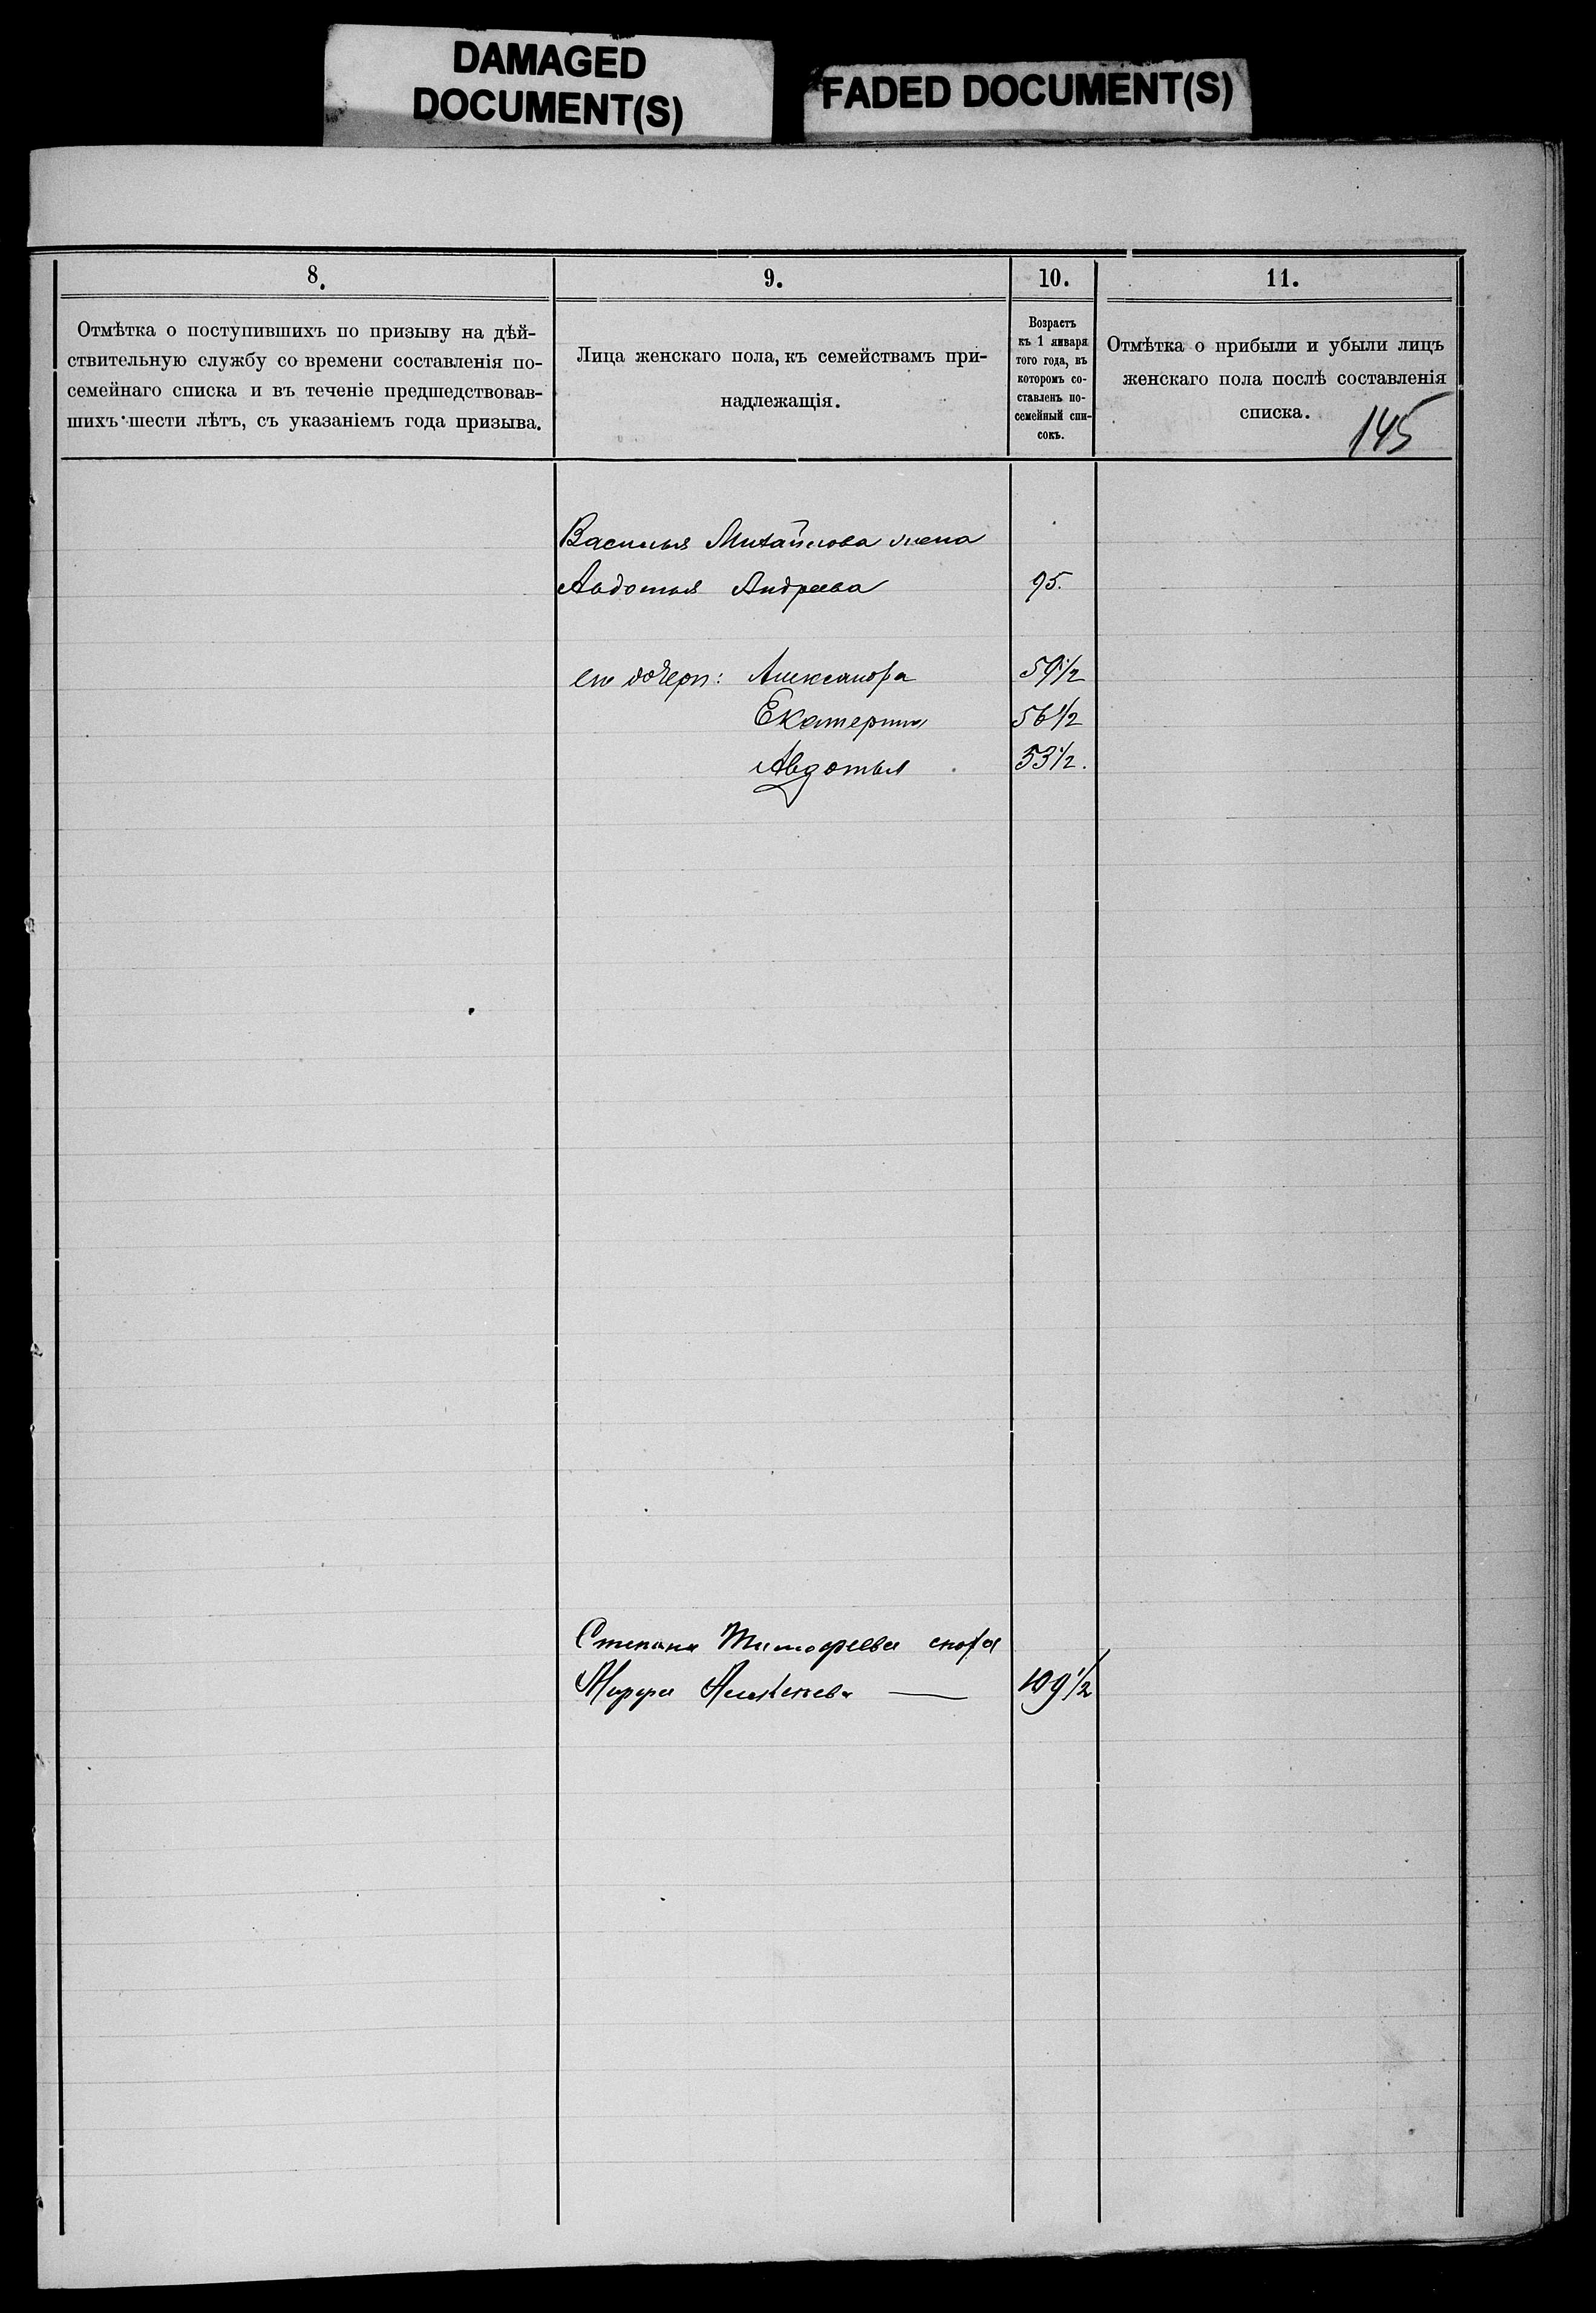 DAMAGED
DOCUMENT(S)
FADED DOCUMENT(S)
8.
9.
10.
11.
Отмѣтка о поступившихъ по призыву на дѣй-
ствительную службу со времени составленія по-
семейнаго списка и въ теченіе предшедствовав-
шихъ шести лѣтъ, съ указаніемъ года призыва.
Лица женскаго пола, къ семействамъ при-
надлежащія.
Возрастъ
къ 1 января
того года, въ
которомъ со-
ставленъ по-
семейный спи-
сокъ.
Отмѣтка о прибыли и убыли лицъ
женскаго пола послѣ составленія
списка.
145
Василья Михайлова жена
Авдотья Андреева 95.
его дочери: Александра 59 1/2
Екатерина 56 1/2
Авдотья 53 1/2.
Степана Тимофеева сноха
Марфа 109 1/2